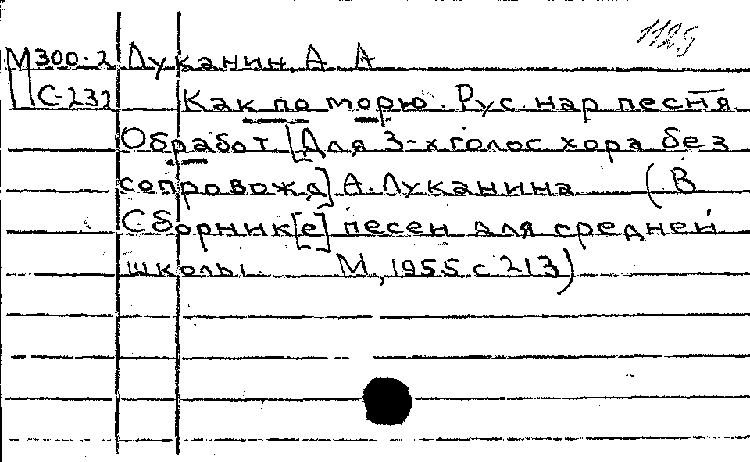 1125
М300-2 Луканин А. А
С-232 Как по морю. Рус. нар песня
Обработ [Для 3-х голос хора без
сопровожд] А. Луканина (В
Сборник[е] песен для средней
школы. М, 1955 с 213)